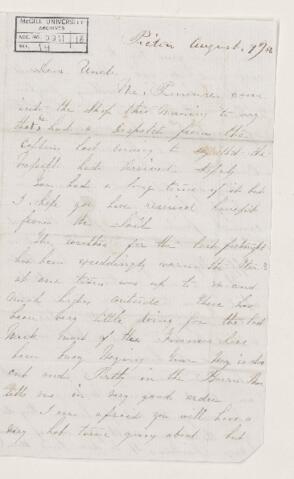 McGILL UNIVERSITY
ARCHIVES
ACC. NO.
REF.
Pictou August 9th
Dear Uncle
Mr. Primrose came
into the shop this morning to say
that he had a despatch from the
Captain last evening to the
had arrived safely
You had a long time of it but
I hope you have received benefit
from the Sail
The weather for the last fortnight
has been exceedingly warm the
at one time was up to and
much higher outside There has
been very little doing for the last
Week most of the Farmers have
been busy Haying
out and Pretty in the Barn
tells me in very good order
I am afraid you will have a
very hot time going about but